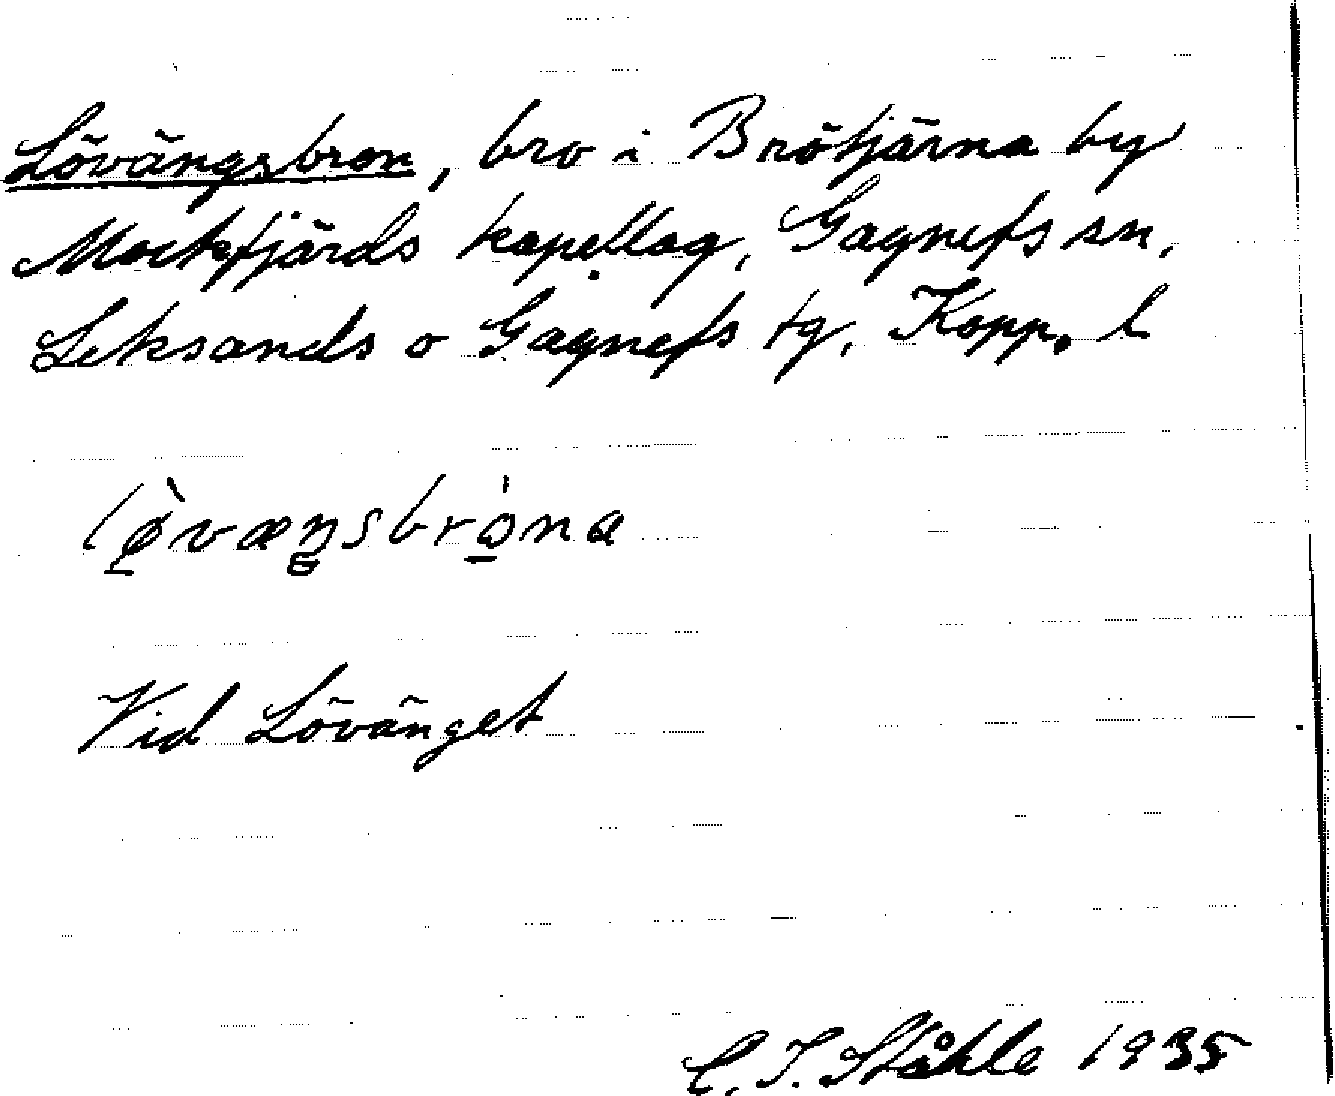 Lövängsbron, bro i Brötjärna by
Mockfjärds kapellag, Gagnefs sn,
Leksands o Gagnefs tg, Kopp. l
lø̠̀væŋsbro̠na
Vid Lövänget
C. I. Ståhle 1935